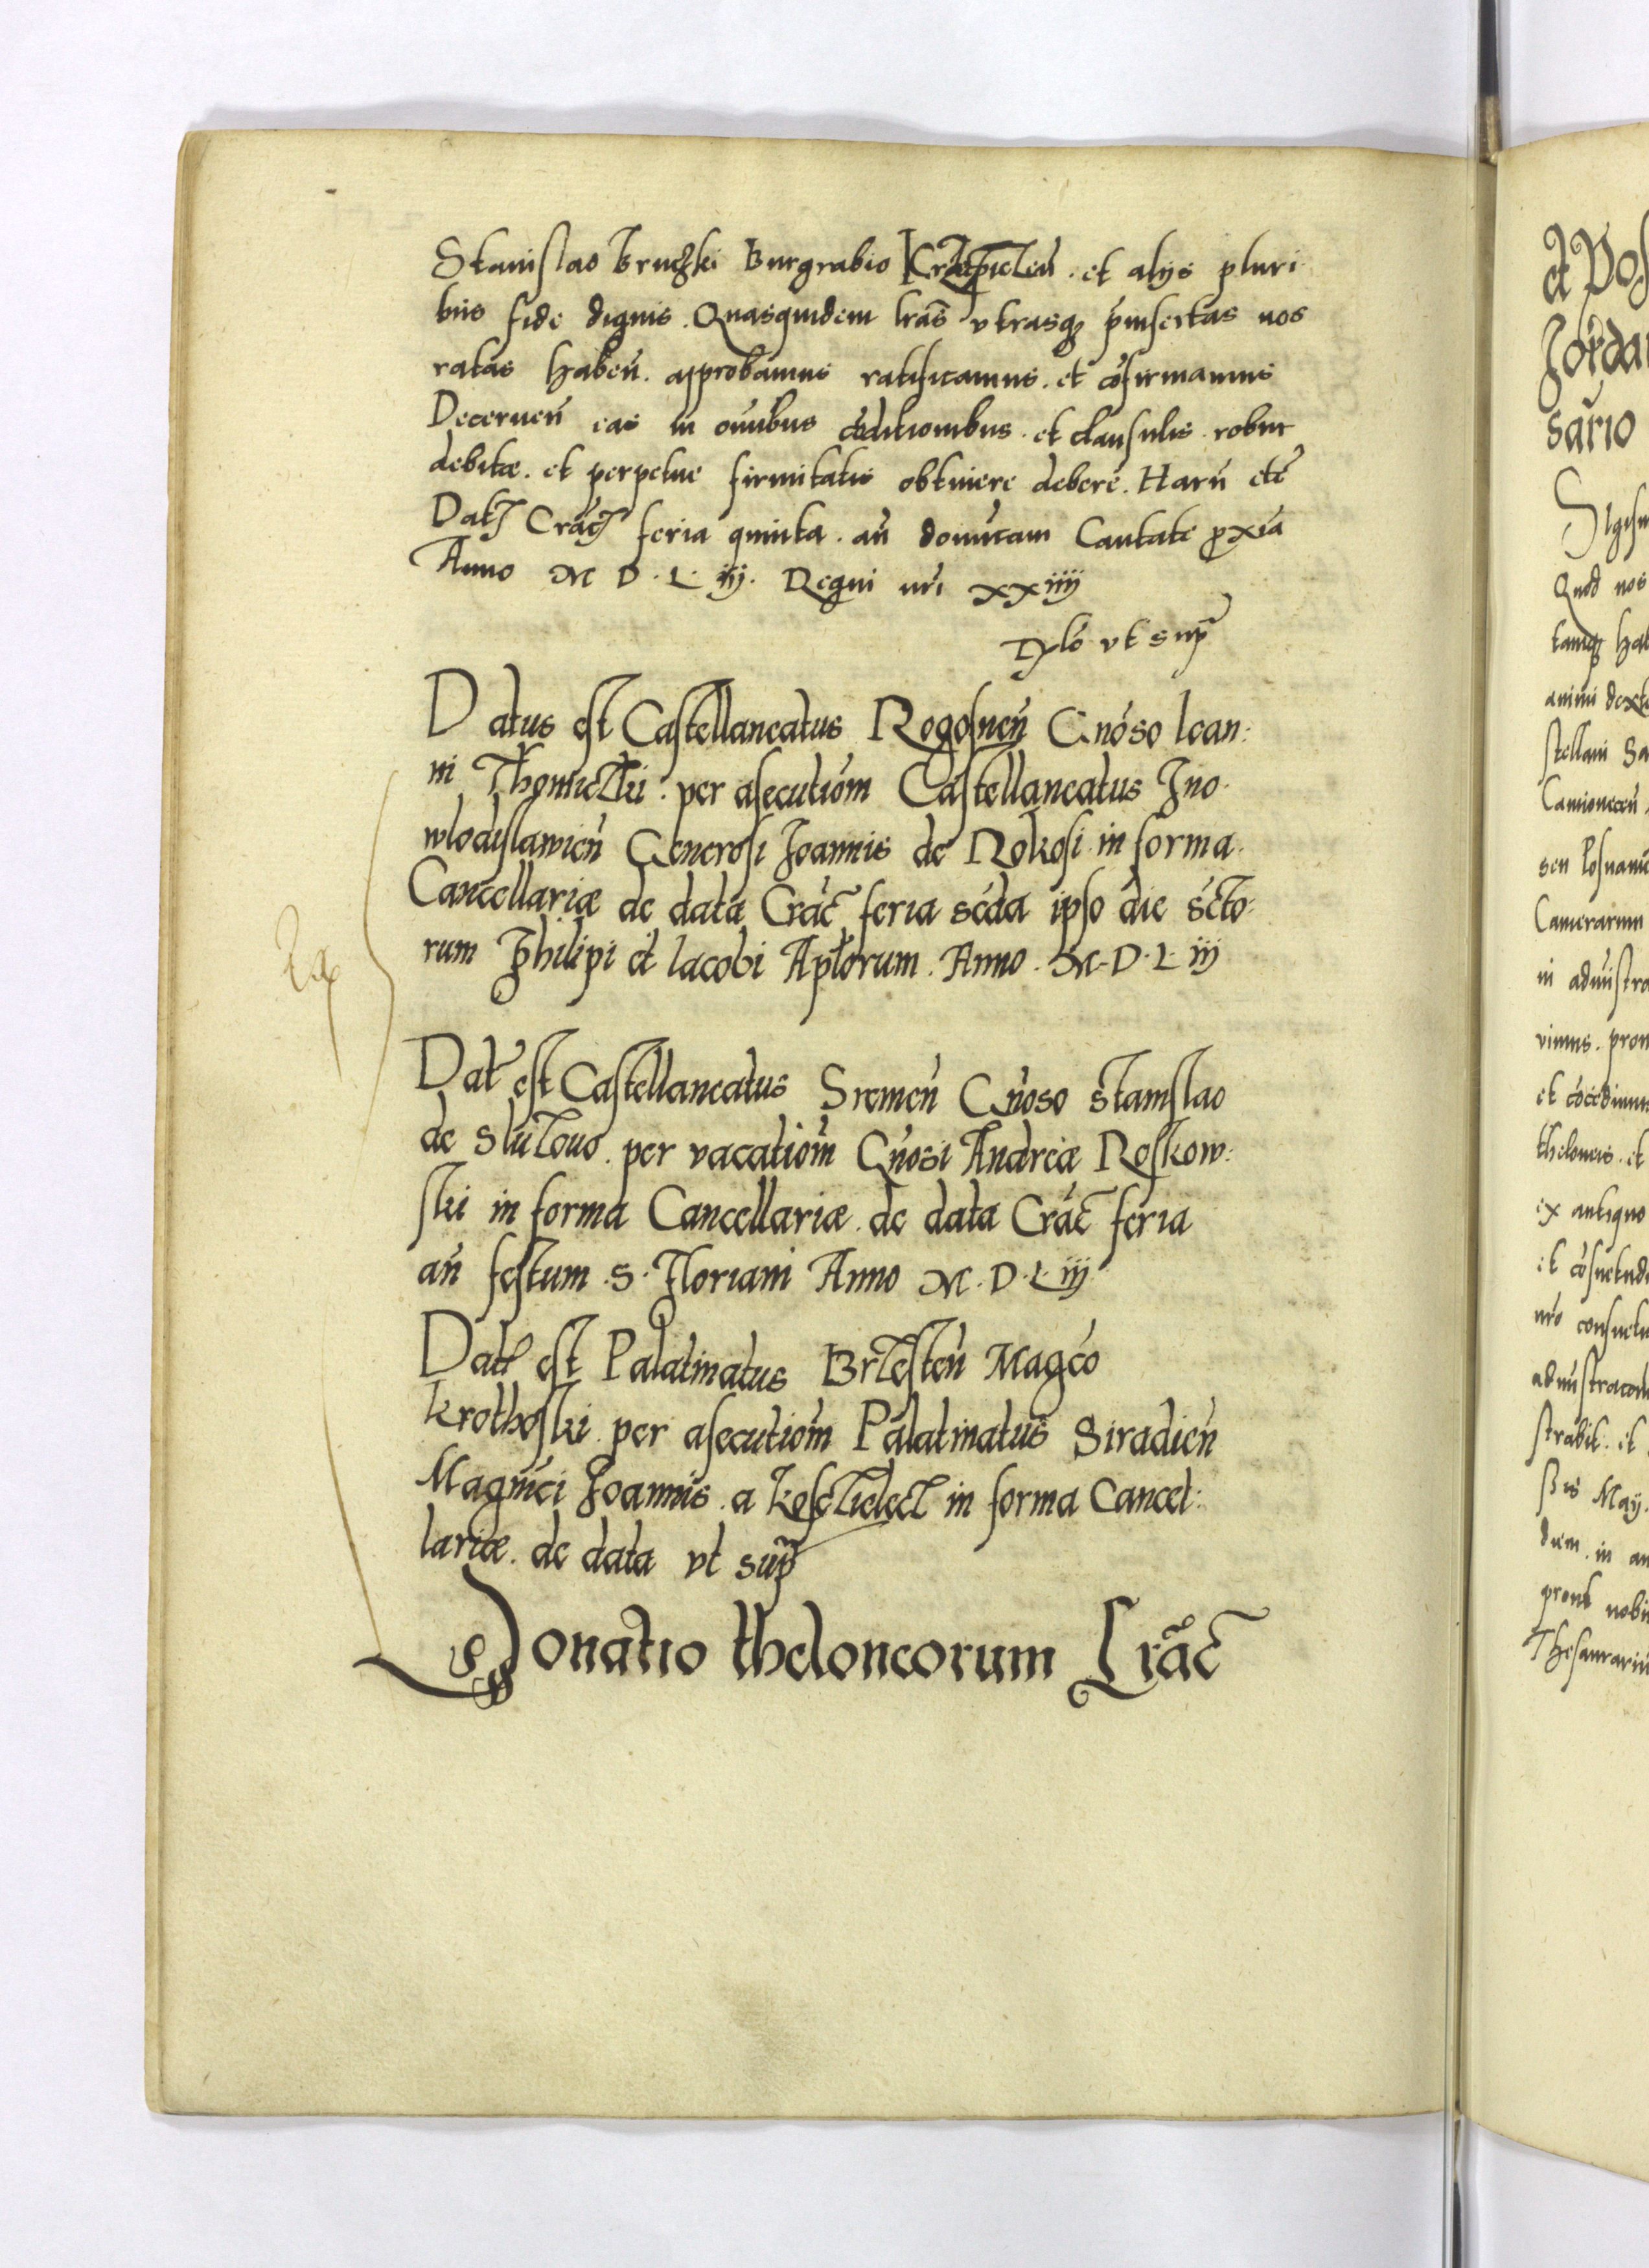 Stanislao Bruchski Burgrabio Krzepicień. et alijs pluri
bus fide dignis. Quasquidem lrás vtrasq₃ pinsertas nos
ratas habeń. approbamus ratificamus. et cófirmamus
Decerneń eas in ómibus códitionibus. et clausulis. robur
debitæ. et perpetue firmitatis obtinere deberé. Harú eté
Dat Crác feria quinta. ań domiícam Cantate pxía
Anno M D. L. iij. Regni nrí xxiiij
vt sup
Datus est Castellaneatus Rogosneń Gnóso Ioan:
ni Thomiczki: per asecutióm Castellaneatus Ino
wlodislawień Generosi Joannis de Rokosi in forma.
Cancellariæ de data Crác feria séda ipso die sćto:
rum Philipi et Iacobi Aplórum. Anno. M. D. L. iij
Dat est Castellaneatus Sremeń Gnóso Stanislao
de Sluzouo. per vacatióm Gnósi Andreæ Roskow:
ski in forma Cancellariæ. de data Crác feria
ań festum. S. Floriani Anno M. D. L. iij
Dat est Palatinatus Brzesteń Magćo
Krothoski. per asecutióm Palatinatus Siradień
Magnići Joannis. a Kosczielecz in forma Cancel:
lariæ. de data vt sup
Donatio theloneorum Crác
et Pos
Jordan
sario
Sigism
Quod nos
tamq₃ hab
animi dexte
stellani Sa
Camoneceń
seu Posnani
Camerarum
ni admistra
uimus. prout
et cócedimus
theloneis. et
ex antiquo
et cósuetudi
nró consuetu
admistracon
strabit. et
sis Maij.
dum. in an
prout nobis
Thesaurariu